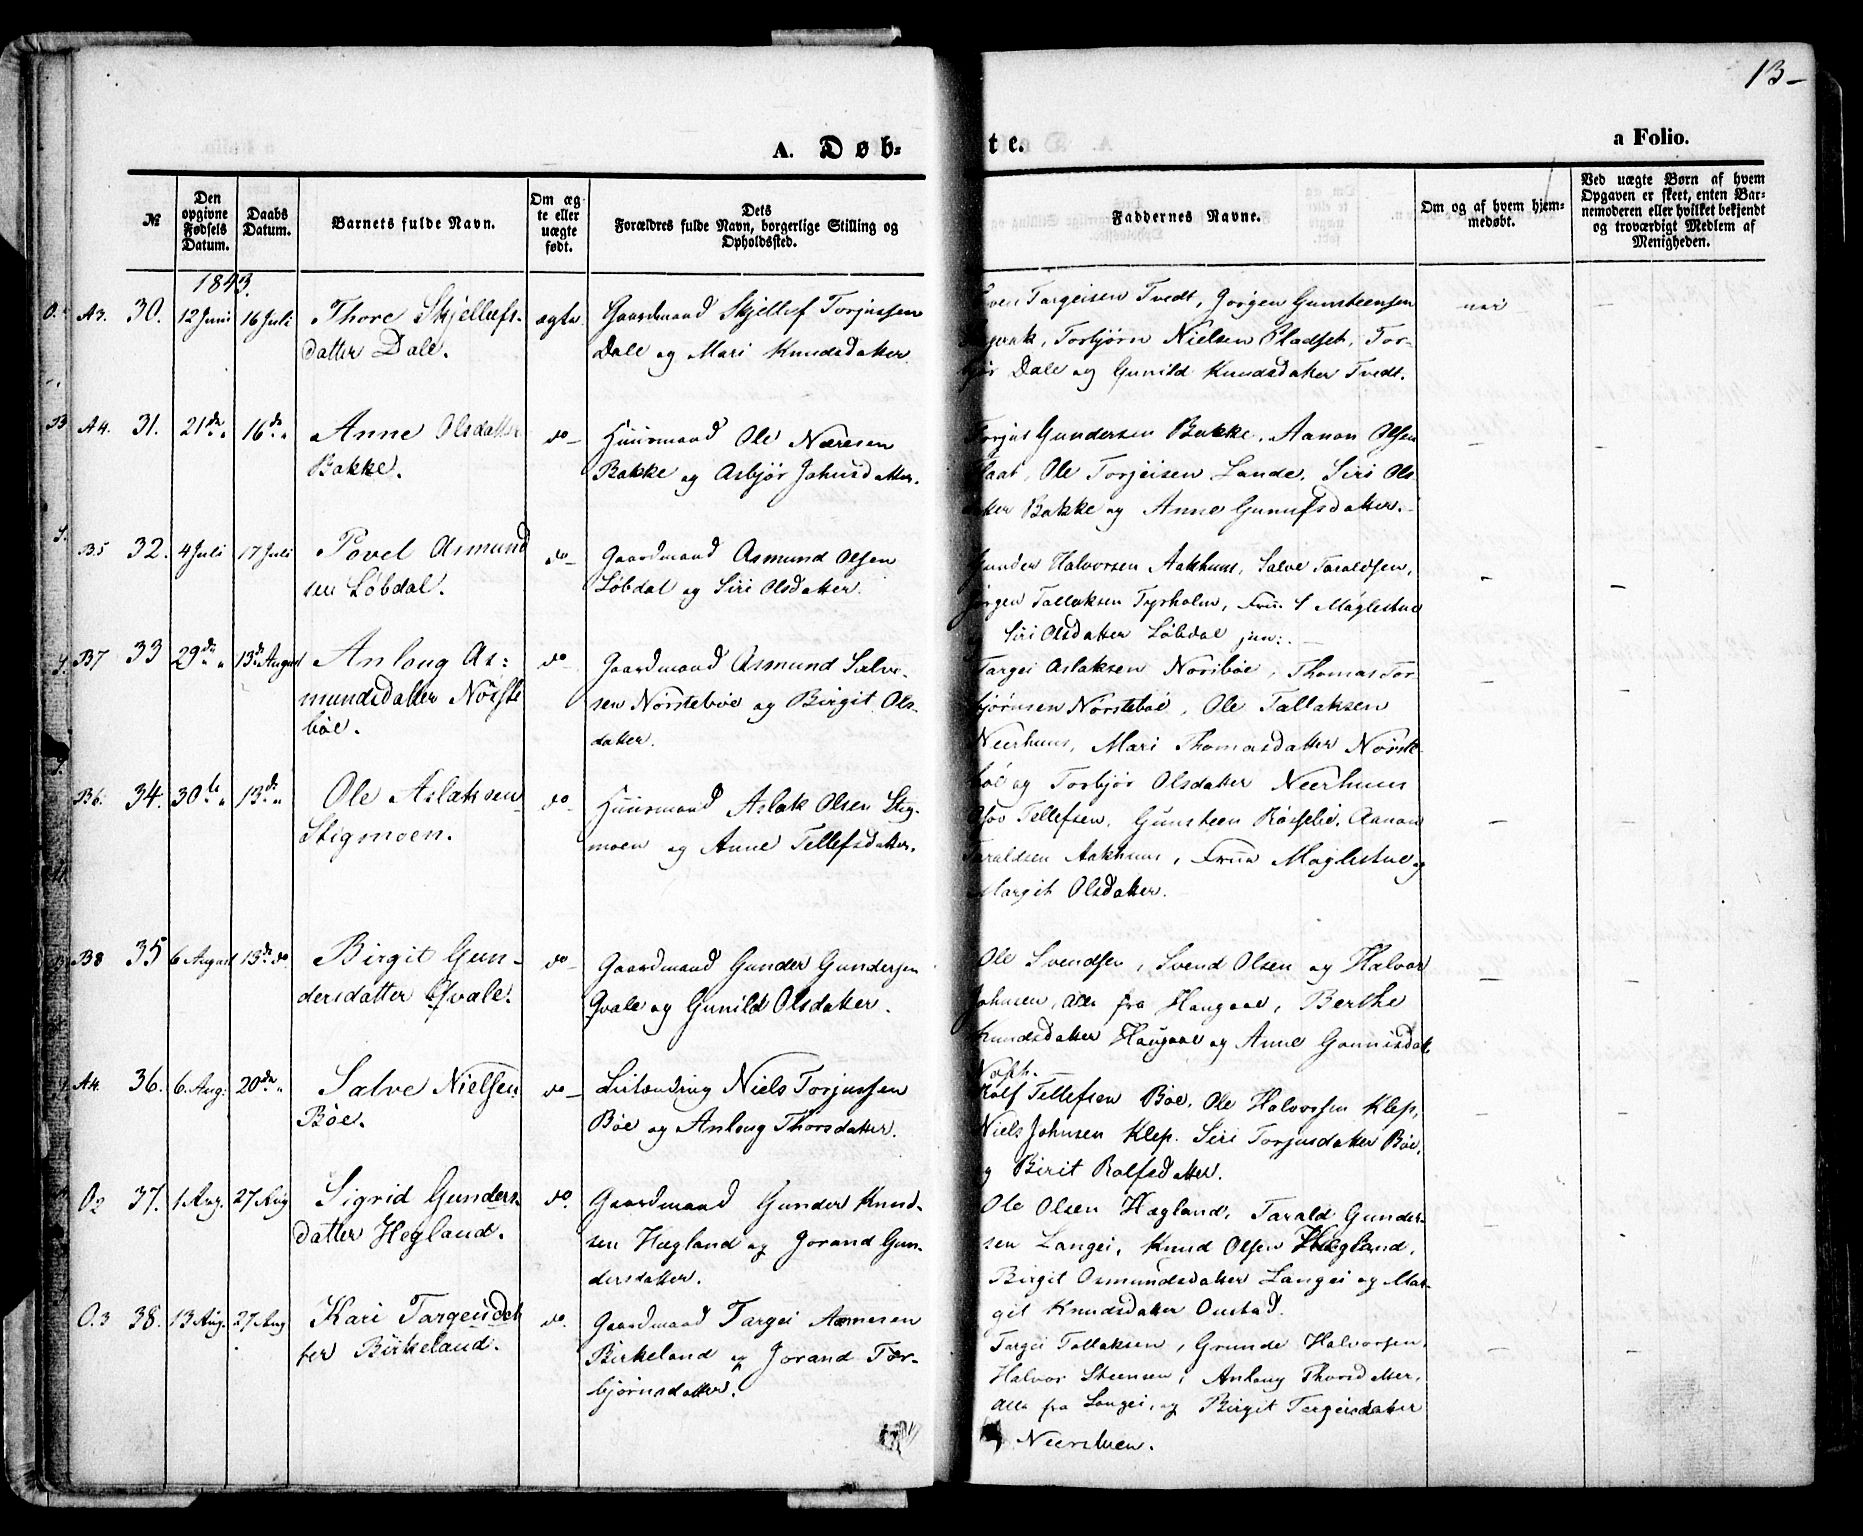 13-
A. Døb-
te.
a Folio.
№
Den opgivne Fødsels Datum.
Daabs Datum.
Barnets fulde Navn.
Om ægte eller uægte født.
Dets Forældres fulde Navn, borgerlige Stilling og Opholdssted.
Faddernes Navne.
Om og af hvem hjemmedøbt.
Ved uægte Børn af hvem Opgaven er skeet, enten Barnemoderen eller hvilket bekjendt og troværdigt Medlem af Menigheden.
1843.
A3. 30. 12 Juni 16 Juli
Thore Skjellefs-
datter Dale.
ægte
Gaardmand Skjellef Torjussen
Dale og Mari Knudsdatter.
Targeisen Tvedt, Jørgen Gunsteensen
Torbjørn Nielsen Pladset, Tor-
Dale og Gunild Knudsdatter Tvedt.
A4. 31. 21de 16de
Anne Olsdatter
Bakke.
do
Huusmand Ole Næresen
Bakke og Asbjør Johnsdatter.
Torjus Gundersen Bakke, Aanon Olsen
Ole Torjeisen Lande, Siri Ols-
datter Bakke og Anne Gunufsdatter.
B5 32. 4 Juli 17 Juli
Povel Asmund
sen Løbdal.
do
Gaardmand Asmund Olsen
Løbdal og Siri Olsdatter.
Gunder Halvorsen Aakhuus, Salve Taraldsen,
Jørgen Tallaksen Tyrholm, Fru S Møglestue
Siri Olsdatter Løbdal jun:.
B7 33 29de 13de August
Anlaug As:
mundsdatter Nörste
böe.
do
Gaardmand Asmund Salve-
sen Nörsteböe og Birgit Ols-
datter.
Targei Aslaksen Noriböe, Thomas Tor
bjørnsen Nörsteböe, Ole Tallaksen
Neerhuus, Mari Thomasdatter Nörste
böe og Torbjør Olsdatter Neerhuus
B6. 34. 30te 13de
Ole Aslaksen
Stigmoen.
do
Huusmand Aslak Olsen Stig-
moen og Anne Tellefsdatter.
Tellefsen, Gunsteen Røsselie, Aanon
Taraldsen Aakhuus, Frue Møglestue og
Margit Olsdatter.
B8 35 6 August 13de do
Birgit Gun-
dersdatter Qvale.
do
Gaardmand Gunder Gundersen
Qvale og Gunild Olsdatter.
Ole Svendsen, Svend Olsen og Halvor
Johnsen, alle fra Haugaae, Berthe
Knudsdatter Haugaae og Anne Gonnisdatt.
A4. 36. 6 Aug: 20de
Salve Nielsen
Böe.
do
Niels Torjussen
Böe og Anlaug Thorsdatter.
Rolf Tellefsen Böe, Ole Halvorsen Klep,
Niels Johnsen Klep. Siri Torjusdatter Böe,
og Birit Rolfsdatter.
O2 37. 1 Aug. 27 Aug
Sigrid Gunders-
datter Hegland.
do.
Gaardmand Gunder Knud-
sen Hægland og Jorand Gun-
dersdatter.
Ole Olsen Hægland, Tarald Gunder-
sen Langei, Knud Olsen Hægland,
Birgit Osmundsdatter Langei og Mar-
git Knudsdatter Onstad.
O.3 38. 13 Aug. 27 Aug
Kari Targeisdat
ter Birkeland.
do.
Gaardmand Targei Aannesen
Birkeland og Jorand Tor-
bjørnsdatter.
Targei Tallaksen, Grunde Halvorsen,
Halvor Steensen, Anlaug Thorsdatter,
alle fra Langei, og Birgit Targeisdatter
Neerstuen.